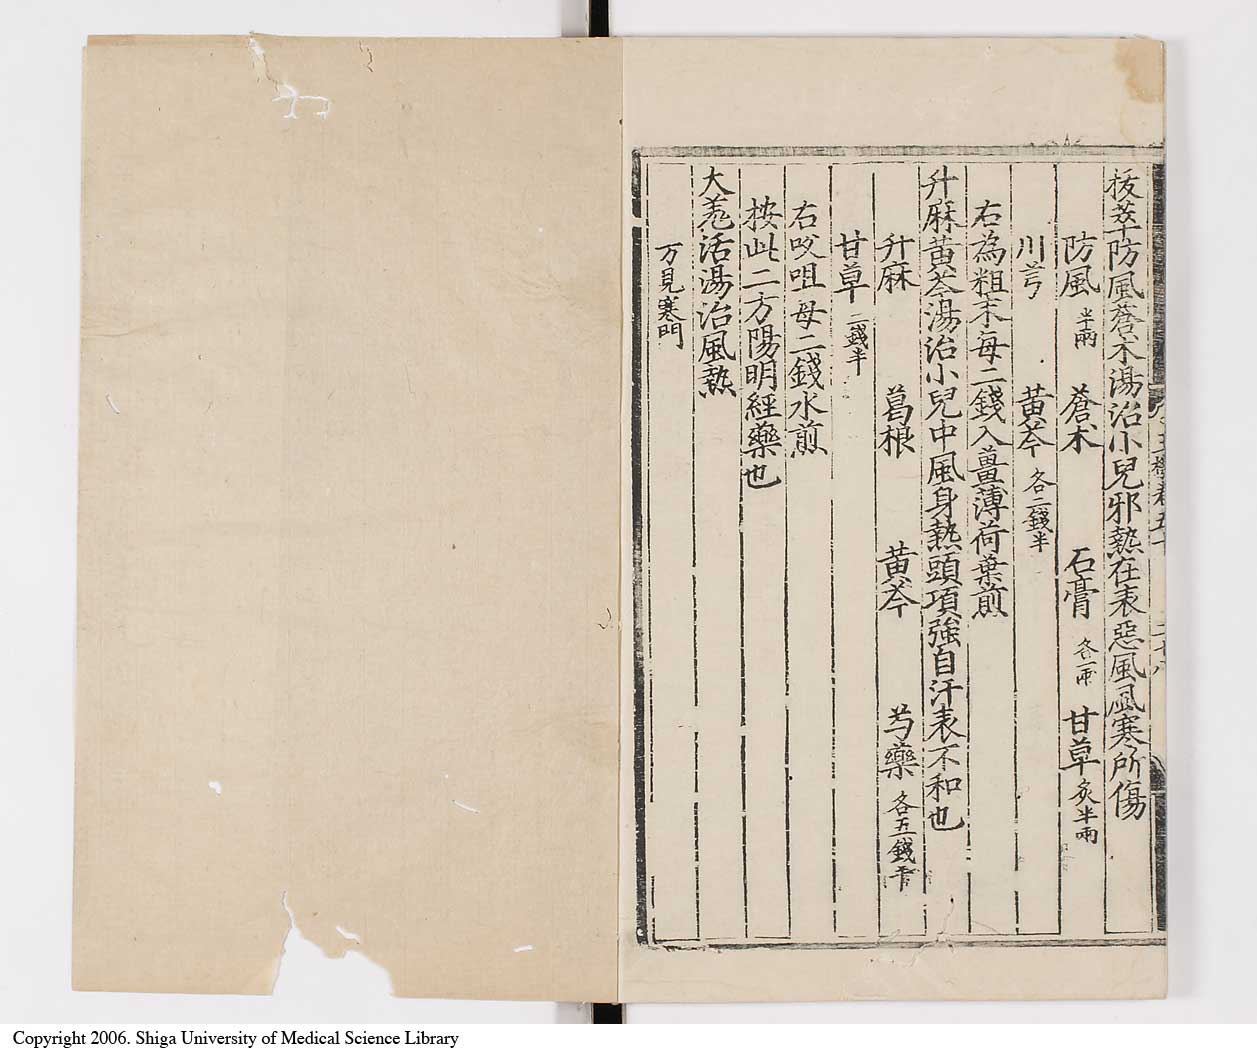 拔萃防風蒼朮湯治小兒邪熱在表惡風風寒所傷
防風半兩 蒼朮 石膏各一兩 甘草炙半兩
川芎 黃芩各二錢半
右為粗末每二錢入薑薄荷葉煎
升麻黃芩湯治小兒中風身熱頭項強自汗表不和也
升麻 葛根 黃芩 芍藥各五錢半
甘草二錢半
右㕮咀母二錢水煎
按此二方陽明經藥也
大羗活湯治風熱
方見寒門
Copyright 2006. Shiga University of Medical Science Library